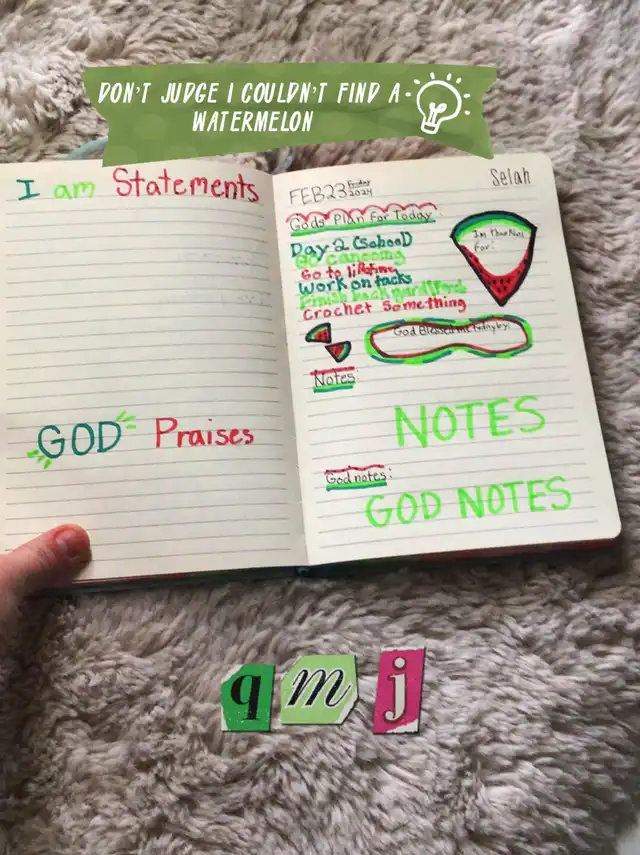 DON'T JUDGE I COULDN'T FIND A
WATERMELON
I am Statements
GOD Praises
FEB 23 Friday 2024
Selah
Gods Plan For Today:
Day 2 (School)
Go canoeing
Go to lifetime
Work on tacks
Finish back yard
Crochet Something
Im Thankful
For:
God Blessed me by:
Notes:
NOTES
God notes:
GOD NOTES
q m j